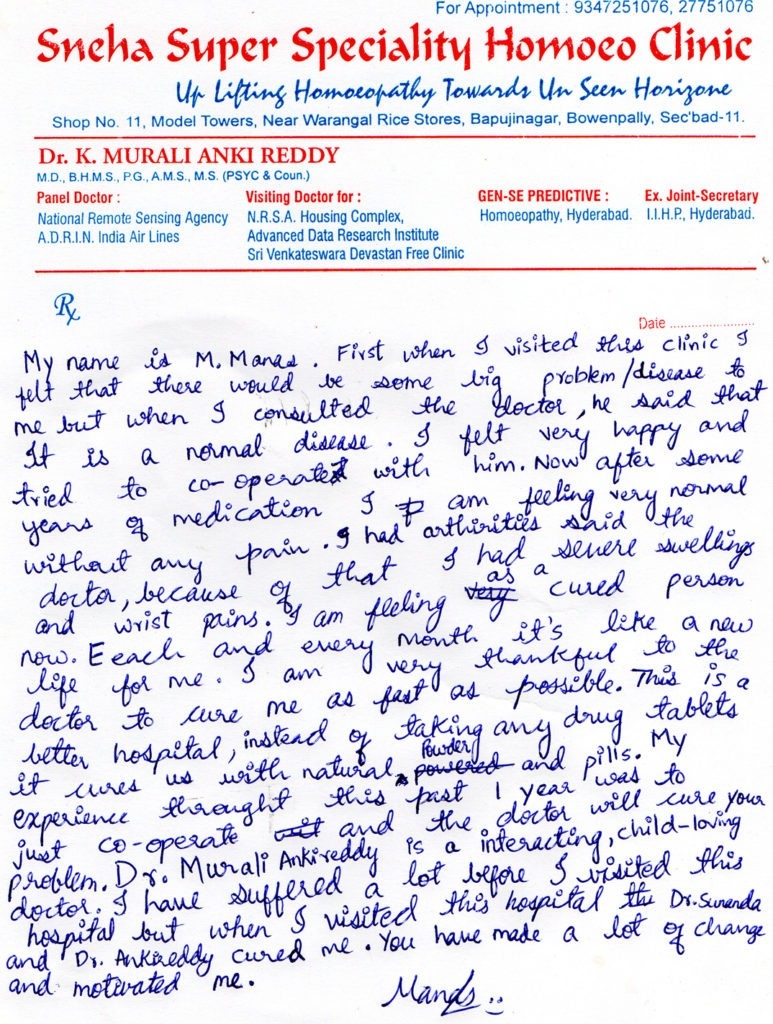 For Appointment : 9347251076, 27751076
Sneha Super Speciality Homoeo Clinic
Up Lifting Homoeopathy Towards Un Seen Horizone
Shop No. 11, Model Towers, Near Warangal Rice Stores, Bapujinagar, Bowenpally, Sec'bad-11.
Dr. K. MURALI ANKI REDDY
M.D., B.H.M.S., P.G., A.M.S., M.S. (PSYC & Coun.)
Panel Doctor :
National Remote Sensing Agency
A.D.R.I.N. India Air Lines
Visiting Doctor for :
N.R.S.A. Housing Complex,
Advanced Data Research Institute
Sri Venkateswara Devastan Free Clinic
GEN-SE PREDICTIVE :
Homoeopathy, Hyderabad.
Ex. Joint-Secretary
I.I.H.P., Hyderabad.
Rx
Date ......................
My name is M. Manas. First when I visited this clinic I
felt that there would be some big problem/disease to
me but when I consulted the doctor, he said that
It is a normal disease. I felt very happy and
tried to co-operate with him. Now after some
years of medication I am feeling very normal
without any pain. I had arthirities said the
doctor, because of that I had severe swellings
and wrist pains. I am feeling as a cured person
now. Eeach and every month it's like a new
life for me. I am very thankful to the
doctor to cure me as fast as possible. This is a
better hospital, instead of taking any drug tablets
it cures us with natural Powder and pills. My
experience throught this past 1 year was to
just co-operate and the doctor will cure your
problem. Dr. Murali Ankireddy is a interacting, child-loving
doctor. I have suffered a lot before I visited this
hospital but when I visited this hospital the Dr. Sunanda
and Dr. Ankireddy cured me. You have made a lot of change
and motivated me.
Manas